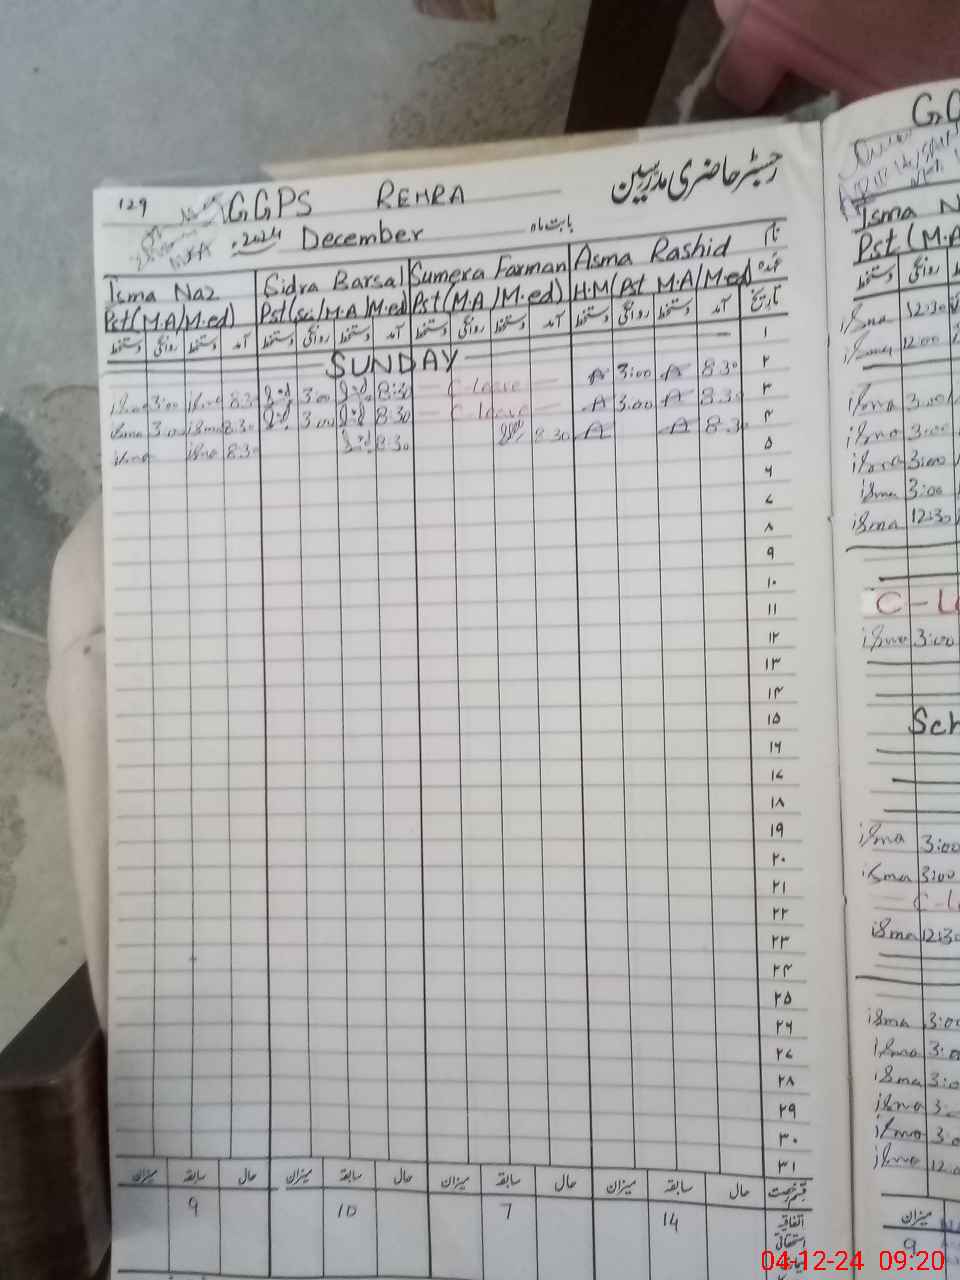 رجسٹر حاضری مدرسین
129 GGPS REHRA
بابت ماہ December 2024
نام Asma Rashid Sumera Farman Sidra Barsal Isma Naz
عہدہ H.M(Pst M.A/M.ed) Pst(M.A/M.ed) Pst(sci/M.A/M.ed) Pst(M.A/M.ed)
تاریخ آمد دستخط روانگی دستخط آمد دستخط روانگی دستخط آمد دستخط روانگی دستخط آمد دستخط روانگی دستخط
۱ SUNDAY
۲ 8.30 A 3:00 A C leave 8:30 3.00 8.30 isma 3:00 isma
۳ 8.30 A 3.00 A C leave 8:30 3.00 8.30 isma 3:00 isma
۴ 8.30 A A 8.30 8:30 8.30 isma isma
۵
۶
۷
۸
۹
۱۰
۱۱
۱۲
۱۳
۱۴
۱۵
۱۶
۱۷
۱۸
۱۹
۲۰
۲۱
۲۲
۲۳
۲۴
۲۵
۲۶
۲۷
۲۸
۲۹
۳۰
۳۱
قسم رخصت حال سابقہ میزان حال سابقہ میزان حال سابقہ میزان حال سابقہ میزان
اتفاقیہ 14 7 10 9
استحقاقی
Isma N
Pst(M.A
روانگی دستخط
isma 12:30
isma 12:00
isma 3:00
isma 3:00
isma 3:00
isma 3:00
isma 12:30
C-Le
isma 3:00
Sch
isma 3:00
isma 3:00
C-L
isma 12:30
isma 3:00
isma 3:0
isma 3:0
isma 3:
isma 3:0
isma 12.0
میزان
9
04-12-24 09:20